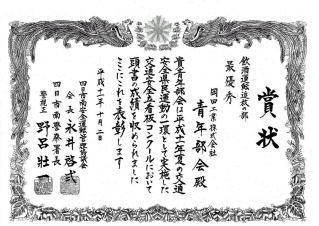 賞状
飲酒運転追放の部
最優秀
岡田工業株式会社
青年部会殿
貴青年部会は平成十一年夏の交通
安全県民運動の一環として実施した
交通安全立看板コンクールにおいて
頭書の成績を収められました
ここにこれを表彰します
平成十一年十月二日
四日市南交通安全協会
会長 永井啓弐
四日市南警察署長
警視正 野呂壮一